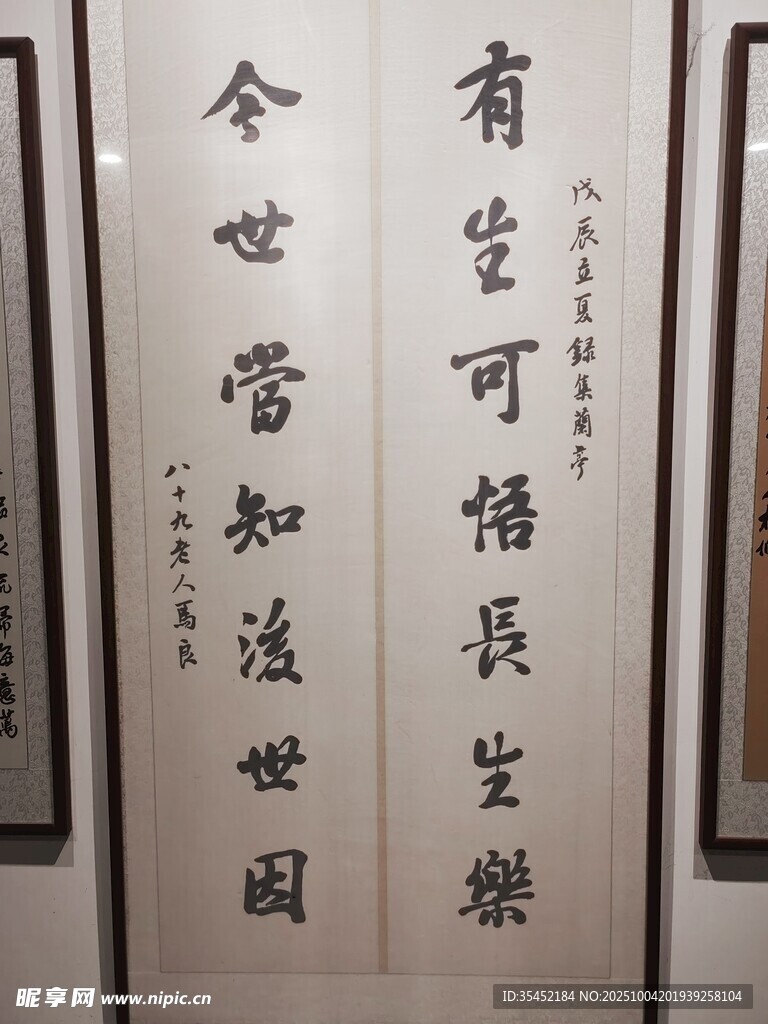 戊辰立夏録集蘭亭
有生可悟長生樂
今世當知後世因
八十九老人馬良
昵享网 www.nipic.cn
ID:35452184 NO:20251004201939258104